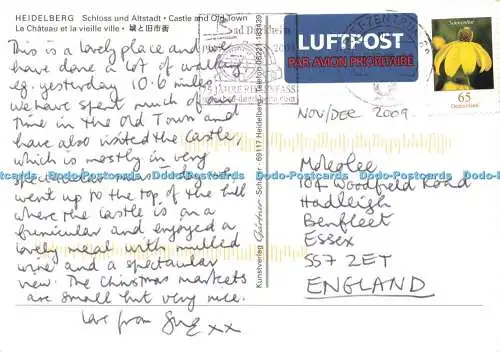 HEIDELBERG Schloss und Altstadt • Castle and Old Town
Le Château et la vieille ville • 城と旧市街
This is a lovely place and we
have done a lot of walking
eg. yesterday 10.6 miles.
We have spent much of our
time in the Old Town and
have also visited the Castle
which is mostly in very
spectacular ruins. Today we
went up to the top of the hill
where the Castle is on a
funicular and enjoyed a
lovely meal with mulled
wine and a spectacular
view. The Christmas markets
are small but very nice.
Love from Sue xx
Kunstverlag Gärtner · Schön · 69117 Heidelberg · Telefon 06221/183439
Bad Dürkheim
LUFTPOST
PAR AVION PRIORITAIRE
BRIEFZENTRUM
65
Deutschland
NOV/DEC 2009
Moleslee
104 Woodfield Road
Hadleigh
Benfleet
Essex
SS7 2ET
ENGLAND
Postcards-Postcards-Postcards
www.postcards-postcards.com